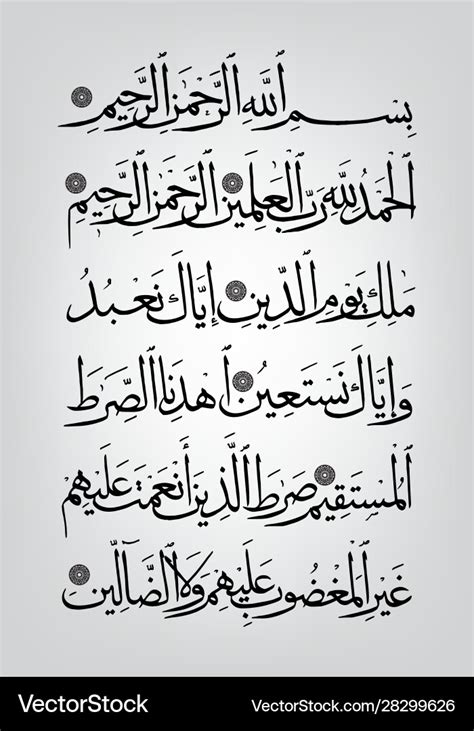 بِسْمِ ٱللَّهِ ٱلرَّحْمَٰنِ ٱلرَّحِيمِ
ٱلْحَمْدُ لِلَّهِ رَبِّ ٱلْعَٰلَمِينَ ٱلرَّحْمَٰنِ ٱلرَّحِيمِ
مَٰلِكِ يَوْمِ ٱلدِّينِ إِيَّاكَ نَعْبُدُ
وَإِيَّاكَ نَسْتَعِينُ ٱهْدِنَا ٱلصِّرَٰطَ
ٱلْمُسْتَقِيمَ صِرَٰطَ ٱلَّذِينَ أَنْعَمْتَ عَلَيْهِمْ
غَيْرِ ٱلْمَغْضُوبِ عَلَيْهِمْ وَلَا ٱلضَّآلِّينَ
VectorStock® VectorStock.com/28299626